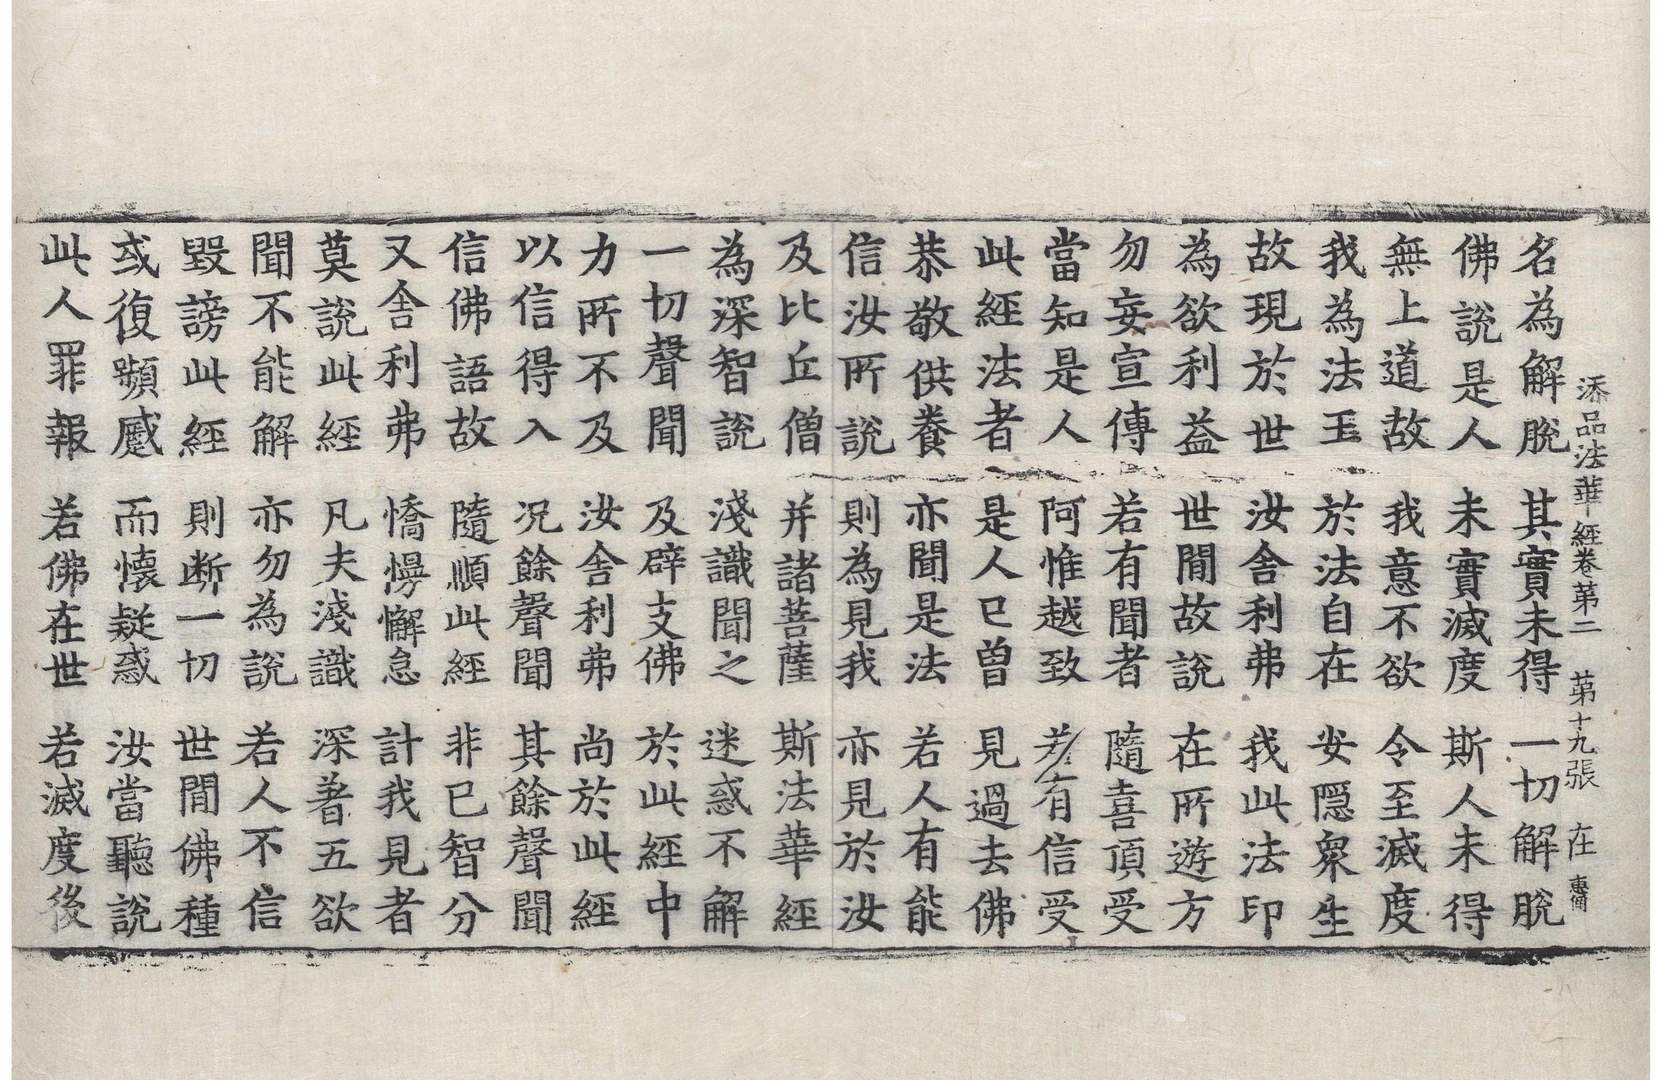 添品法華經卷第二 第十九張 在 惠蘭
名為解脫 其實未得 一切解脫
佛說是人 未實滅度 斯人未得
無上道故 我意不欲 令至滅度
我為法王 於法自在 安隱衆生
故現於世 汝舍利弗 我此法印
為欲利益 世間故說 在所遊方
勿妄宣傳 若有聞者 隨喜頂受
當知是人 阿惟越致 若有信受
此經法者 是人已曾 見過去佛
恭敬供養 亦聞是法 若人有能
信汝所說 則為見我 亦見於汝
及比丘僧 并諸菩薩 斯法華經
為深智說 淺識聞之 迷惑不解
一切聲聞 及辟支佛 於此經中
力所不及 汝舍利弗 尚於此經
以信得入 况餘聲聞 其餘聲聞
信佛語故 隨順此經 非已智分
又舍利弗 憍慢懈怠 計我見者
莫說此經 凡夫淺識 深著五欲
聞不能解 亦勿為說 若人不信
毀謗此經 則断一切 世間佛種
或復顰蹙 而懷疑惑 汝當聽說
此人罪報 若佛在世 若滅度後